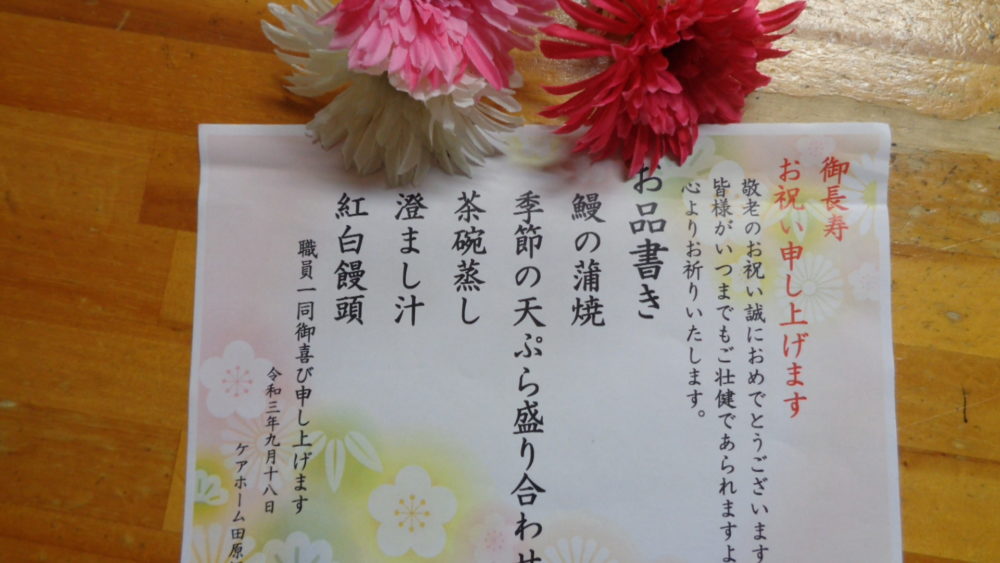 御長寿
お祝い申し上げます
敬老のお祝い誠におめでとうございます
皆様がいつまでもご壮健であられますよ
心よりお祈りいたします。
お品書き
鰻の蒲焼
季節の天ぷら盛り合わせ
茶碗蒸し
澄まし汁
紅白饅頭
職員一同御喜び申し上げます
令和三年九月十八日
ケアホーム田原